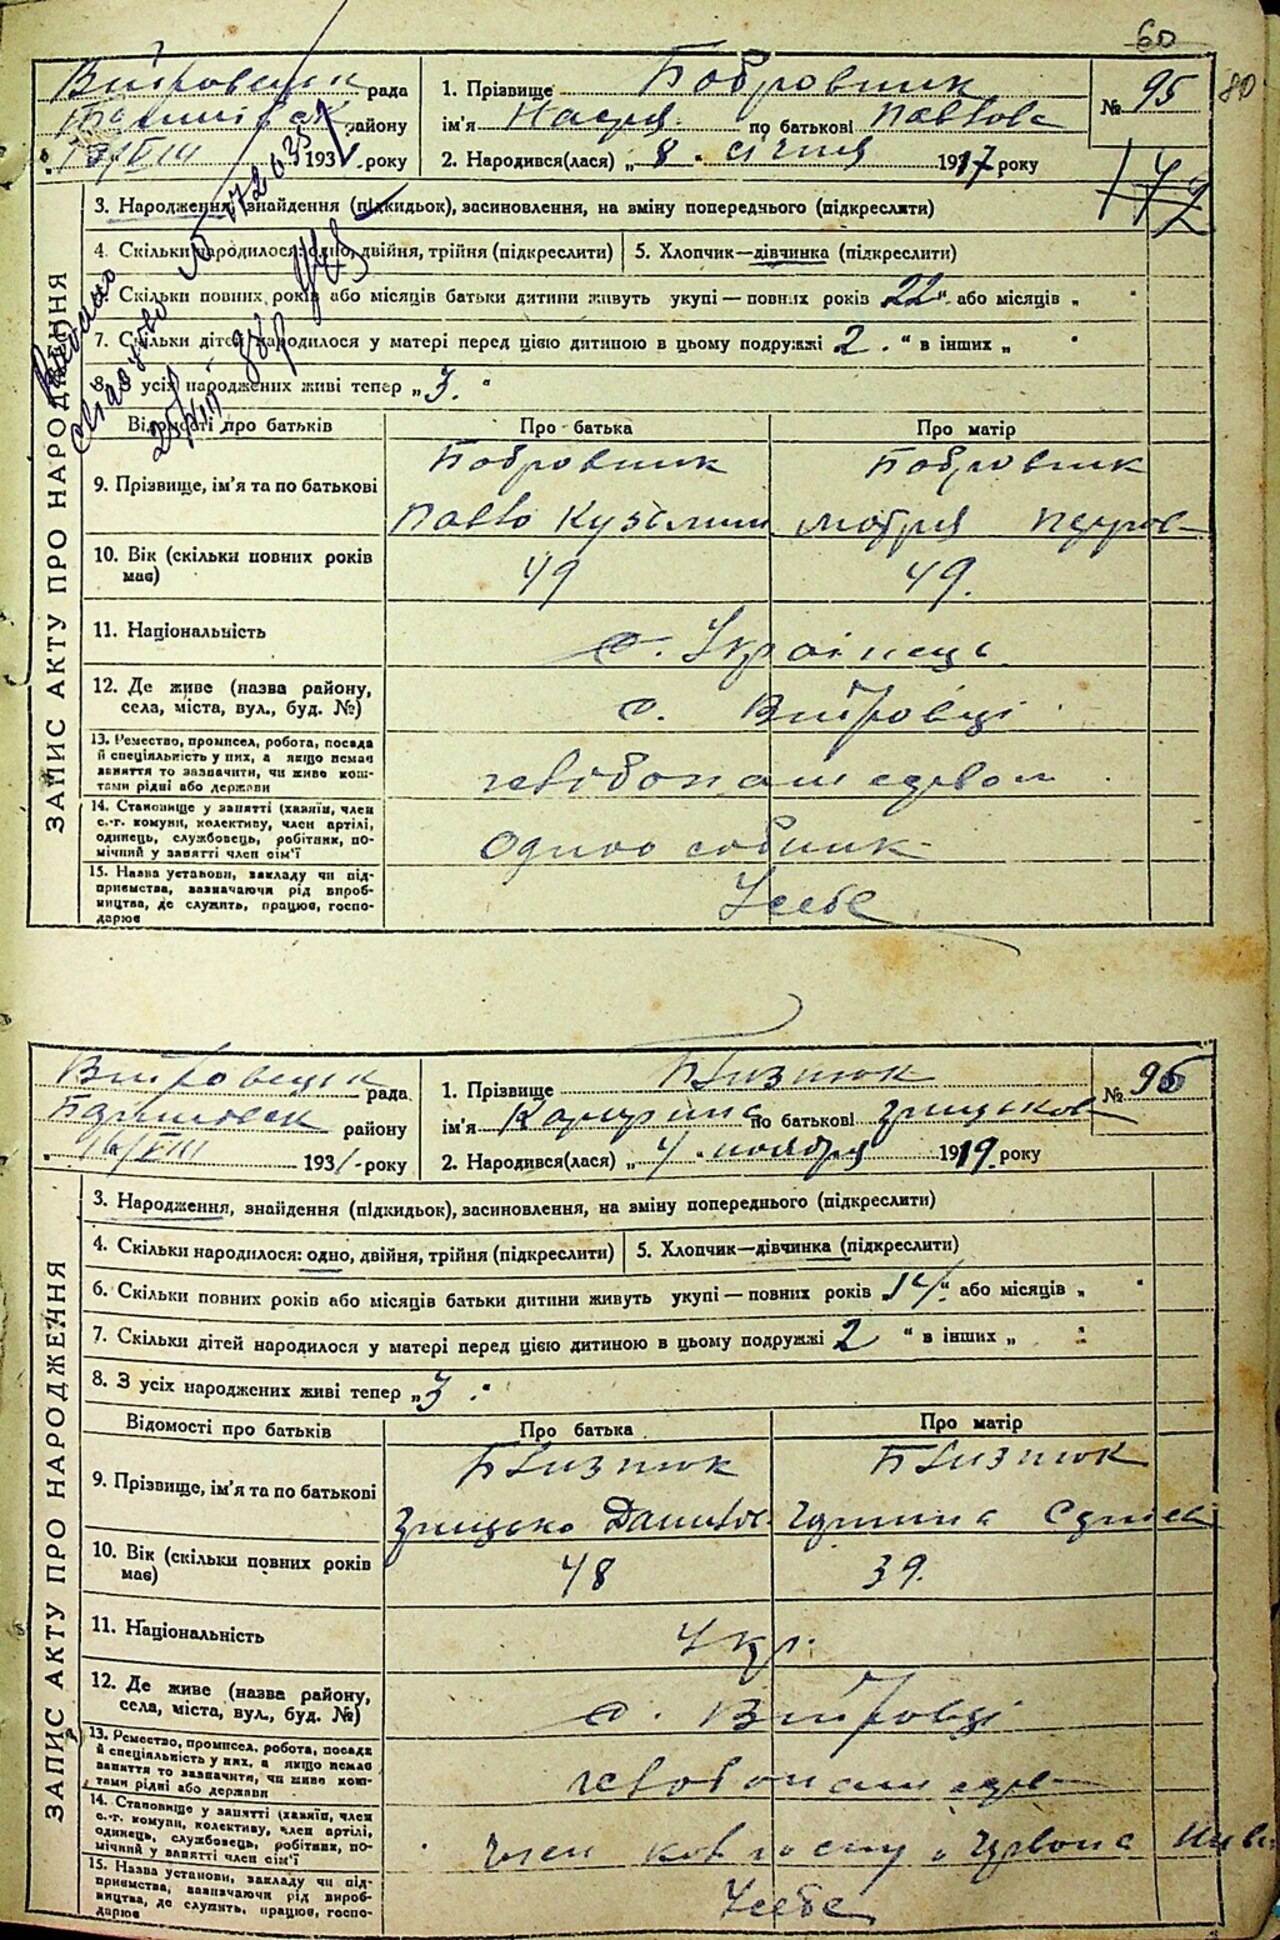 60
80
рада
району
1931 року
1. Прізвище Бобровник
ім'я Настя по батькові Павлова
2. Народився(лася) „ 8 " січня 1917 року
№ 95
142
ЗАПИС АКТУ ПРО НАРОДЖЕННЯ
3. Народження, знайдення (підкидьок), засиновлення, на зміну попереднього (підкреслити)
4. Скільки народилося: одно, двійня, трійня (підкреслити)
5. Хлопчик—дівчинка (підкреслити)
Скільки повних років або місяців батьки дитини живуть укупі — повних років 22 " або місяців „ "
7. Скільки дітей народилося у матері перед цією дитиною в цьому подружжі 2. " в інших „ "
8. З усіх народжених живі тепер „ 3. "
Видано
свідоцтво № 072635
25/VIII
Відомості про батьків
Про батька
Про матір
9. Прізвище, ім'я та по батькові
Бобровник
Бобровник
Павло Кузьмин
Мотря Петров
10. Вік (скільки повних років має)
49
49.
11. Національність
Українець
12. Де живе (назва району,
села, міста, вул., буд. №)
с.
13. Ремество, промисел, робота, посада
й спеціяльність у них, а якщо немає
заняття то зазначити, чи живе кош-
тами рідні або держави
14. Становище у занятті (хазяїн, член
с.-г. комуни, колективу, член артілі,
одинець, службовець, робітник, по-
мічний у занятті член сім'ї
Одноособник
15. Назва установи, закладу чи під-
приємства, зазначаючи рід вироб-
ництва, де служить, працює, госпо-
дарює
У себе
рада
району
16/VIII 1931 року
1. Прізвище Близнюк
ім'я Катерина по батькові Грицьков
2. Народився(лася) „ 4 " ноября 1919. року
№ 96
ЗАПИС АКТУ ПРО НАРОДЖЕННЯ
3. Народження, знайдення (підкидьок), засиновлення, на зміну попереднього (підкреслити)
4. Скільки народилося: одно, двійня, трійня (підкреслити)
5. Хлопчик—дівчинка (підкреслити)
6. Скільки повних років або місяців батьки дитини живуть укупі — повних років „ 14 " або місяців „ "
7. Скільки дітей народилося у матері перед цією дитиною в цьому подружжі 2 " в інших „ "
8. З усіх народжених живі тепер „ 3 "
Відомості про батьків
Про батька
Про матір
9. Прізвище, ім'я та по батькові
Близнюк
Близнюк
Грицько Данилов
10. Вік (скільки повних років має)
48
39.
11. Національність
Укр.
12. Де живе (назва району,
села, міста, вул., буд. №)
с.
13. Ремество, промисел, робота, посада
й спеціяльність у них, а якщо немає
заняття то зазначити, чи живе кош-
тами рідні або держави
14. Становище у занятті (хазяїн, член
с.-г. комуни, колективу, член артілі,
одинець, службовець, робітник, по-
мічний у занятті член сім'ї
член колгоспу „Червона Нива
15. Назва установи, закладу чи під-
приємства, зазначаючи рід вироб-
ництва, де служить, працює, госпо-
дарює
У себе